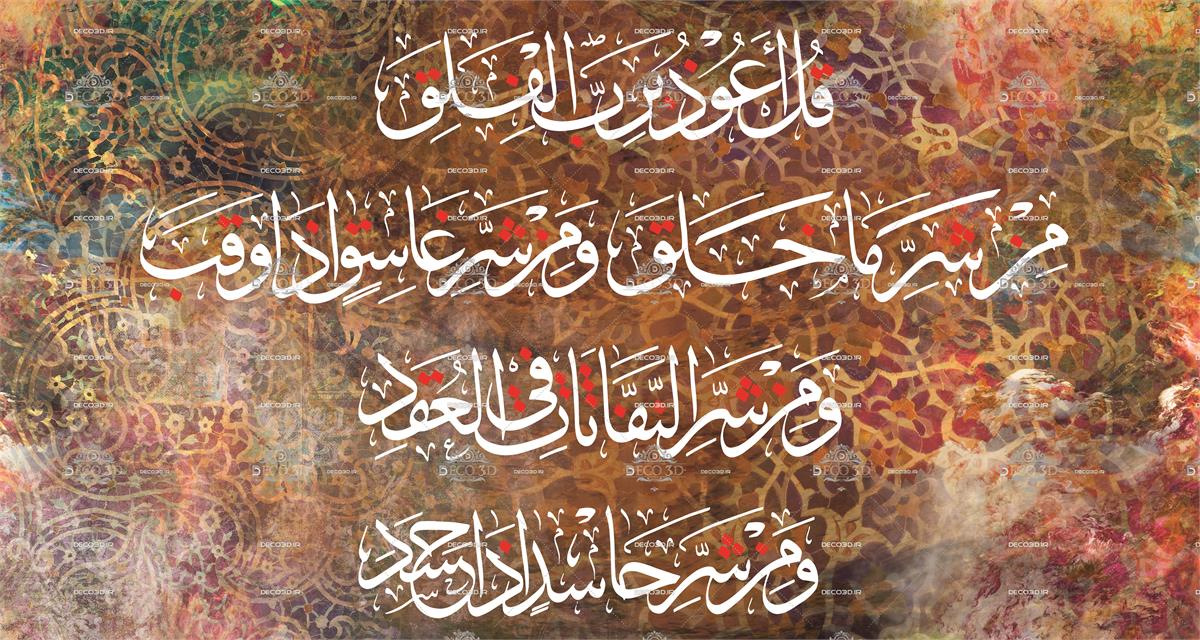 قُل أَعُوذُ بِرَبِّ الْفَلَقِ
مِن شَرِّ مَا خَلَقَ وَمِن شَرِّ غَاسِقٍ إِذَا وَقَبَ
وَمِن شَرِّ النَّفَّاثَاتِ فِي الْعُقَدِ
وَمِن شَرِّ حَاسِدٍ إِذَا حَسَدَ
DECO3D.IR
DECO 3D